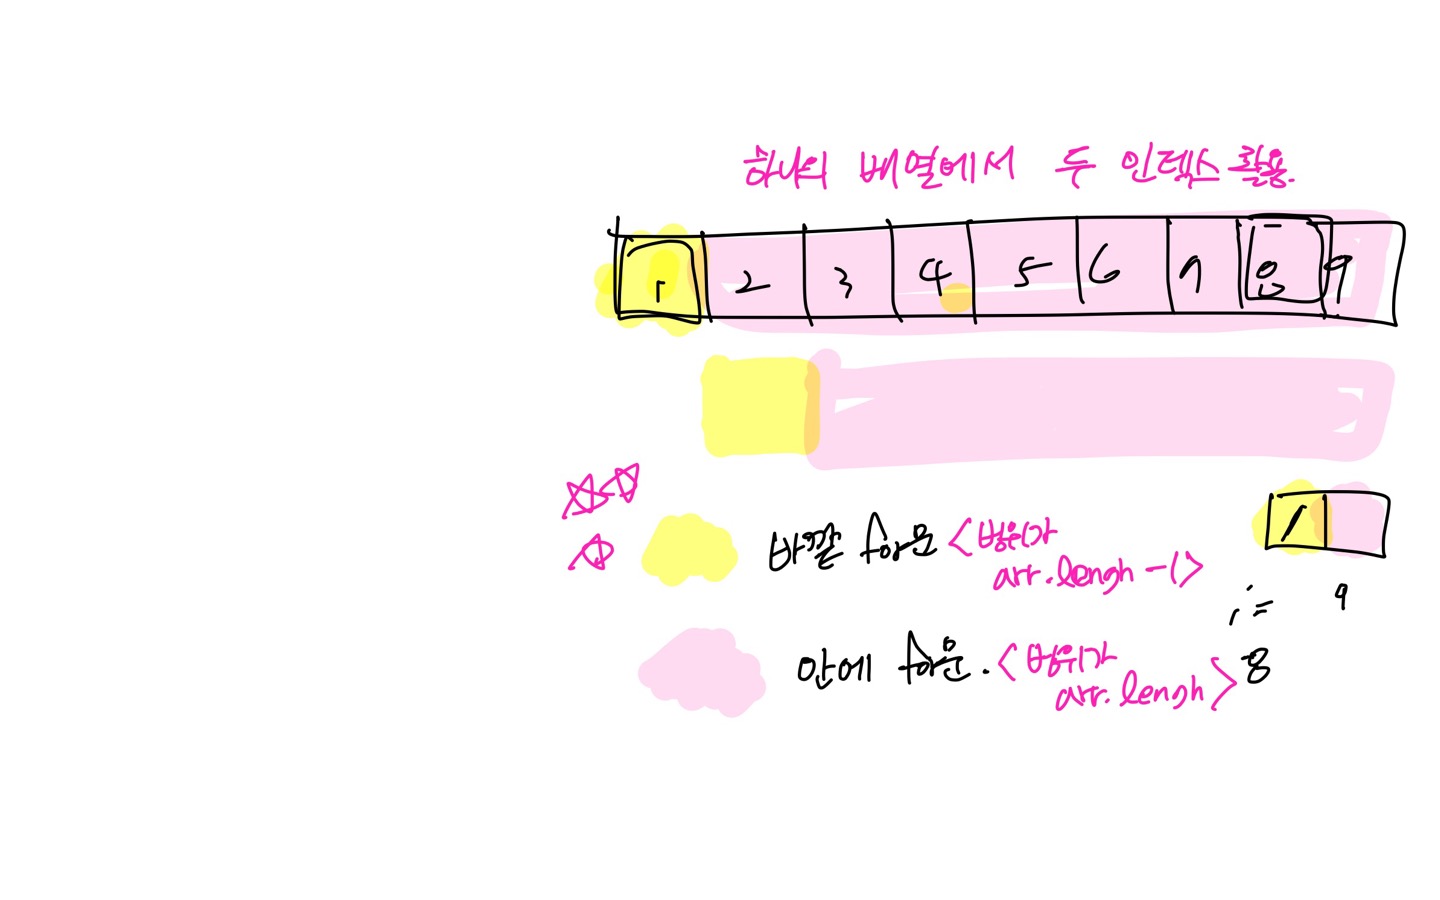 하나의 배열에서 두 인덱스 활용.
1 2 3 4 5 6 7 8 9
바깥 for문 <범위가
arr.lengh -1>
i = 9
안에 for문. <범위가
arr.lengh> 8